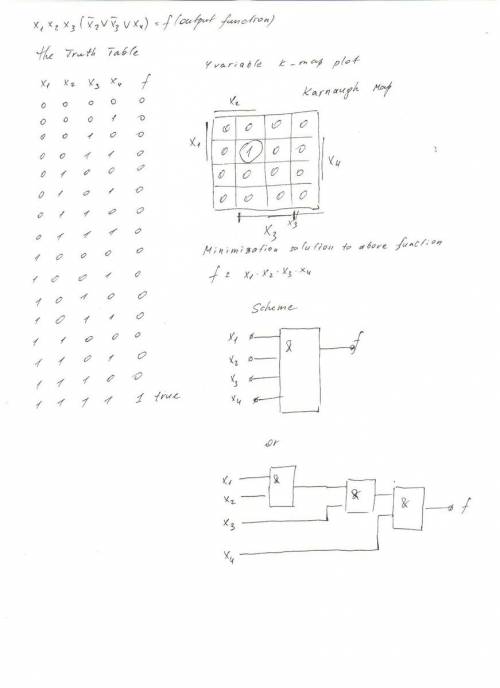 x₁ x₂ x₃ (x̄₂ ∨ x̄₃ ∨ x₄) = f (output function)
the Truth Table
x₁ x₂ x₃ x₄ f
0 0 0 0 0
0 0 0 1 0
0 0 1 0 0
0 0 1 1 0
0 1 0 0 0
0 1 0 1 0
0 1 1 0 0
0 1 1 1 0
1 0 0 0 0
1 0 0 1 0
1 0 1 0 0
1 0 1 1 0
1 1 0 0 0
1 1 0 1 0
1 1 1 0 0
1 1 1 1 1 true
4 variable k-map plot
Karnaugh Map
x₂
x₁
0 0 0 0
0 1 0 0
0 0 0 0
0 0 0 0
x₄
x₃
X₃
Minimization solution to above function
f = x₁ · x₂ · x₃ · x₄
Scheme
x₁
x₂
x₃
x₄
&
f
or
x₁
x₂
x₃
x₄
&
&
&
f